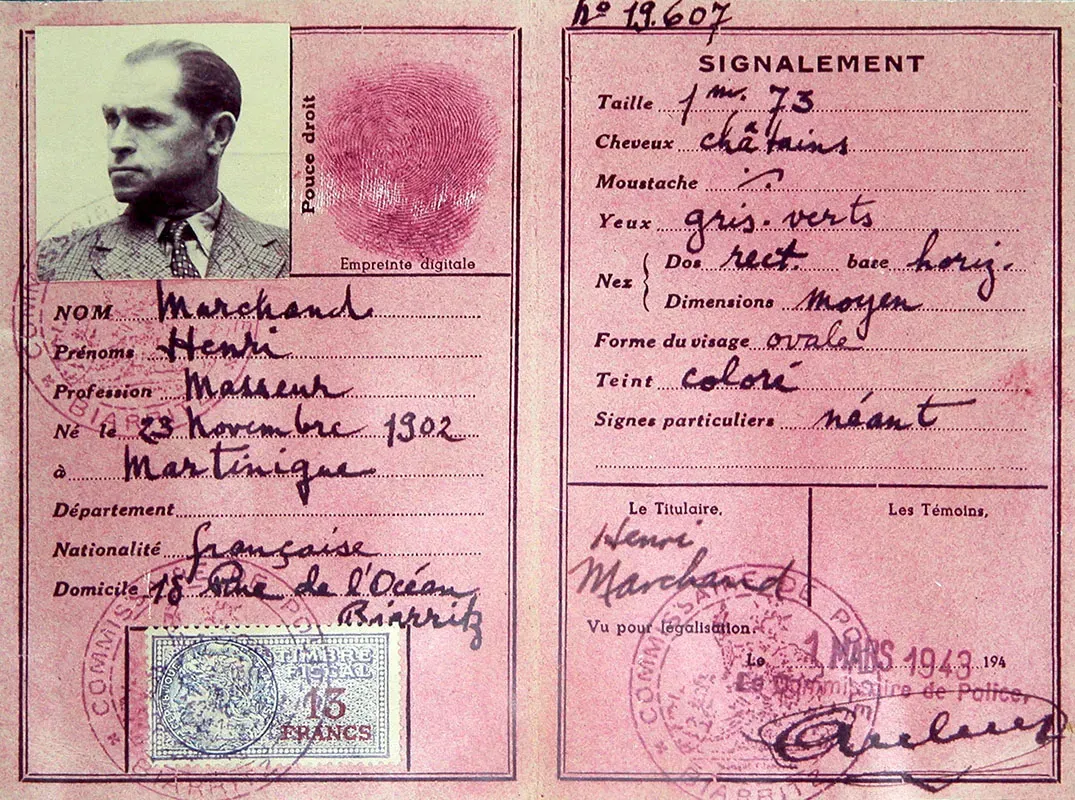 Pouce droit
Empreinte digitale
NOM Marchand
Prénoms Henri
Profession Masseur
Né le 23 Novembre 1902
à Martinique
Département
Nationalité française
Domicile 18 Rue de l'Océan
Biarritz
TIMBRE
FISCAL
13
FRANCS
COMMISSARIAT DE PO
BIARRITZ
No 19.607
SIGNALEMENT
Taille 1 m. 73
Cheveux châtains
Moustache
Yeux gris-verts
Nez { Dos rect. base horiz.
Dimensions moyen
Forme du visage ovale
Teint coloré
Signes particuliers néant
Le Titulaire,
Les Témoins,
Henri
Marchand
Vu pour légalisation.
Le 1 MARS 1943 194
Le Commissaire de Police,